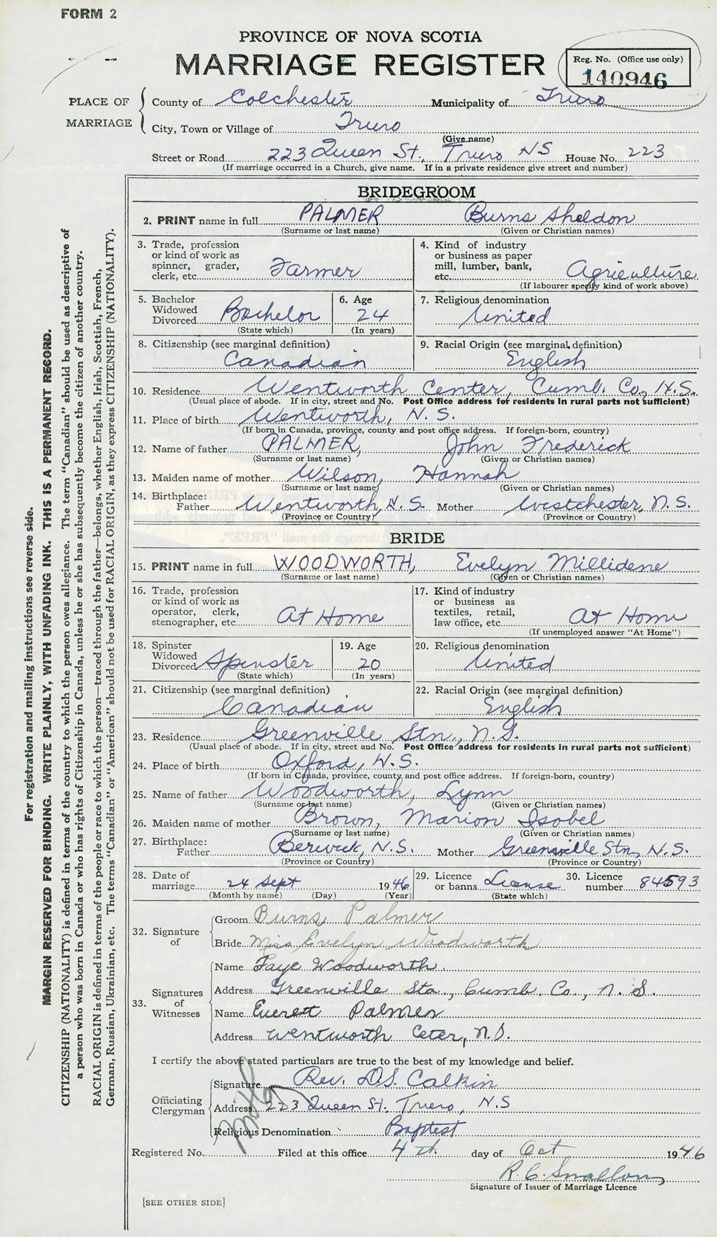 FORM 2
PROVINCE OF NOVA SCOTIA
MARRIAGE REGISTER
Reg. No. (Office use only)
140946
PLACE OF MARRIAGE
County of Colchester Municipality of Truro
City, Town or Village of Truro
(Give name)
Street or Road 223 Queen St., Truro NS House No. 223
(If marriage occurred in a Church, give name. If in a private residence give street and number)
BRIDEGROOM
2. PRINT name in full PALMER Burns Sheldon
(Surname or last name) (Given or Christian names)
3. Trade, profession or kind of work as spinner, grader, clerk, etc. Farmer
4. Kind of industry or business as paper mill, lumber, bank, etc. Agriculture
(If labourer specify kind of work above)
5. Bachelor Widowed Divorced Bachelor
(State which)
6. Age 24
(In years)
7. Religious denomination United
8. Citizenship (see marginal definition) Canadian
9. Racial Origin (see marginal definition) English
10. Residence Wentworth Center, Cumb. Co., N.S.
(Usual place of abode. If in city, street and No. Post Office address for residents in rural parts not sufficient)
11. Place of birth Wentworth, N.S.
(If born in Canada, province, county and post office address. If foreign-born, country)
12. Name of father PALMER, John Frederick
(Surname or last name) (Given or Christian names)
13. Maiden name of mother Wilson, Hannah
(Surname or last name) (Given or Christian names)
14. Birthplace: Father Wentworth, N.S. Mother Westchester, N.S.
(Province or Country) (Province or Country)
BRIDE
15. PRINT name in full WOODWORTH, Evelyn Millidene
(Surname or last name) (Given or Christian names)
16. Trade, profession or kind of work as operator, clerk, stenographer, etc. At Home
17. Kind of industry or business as textiles, retail, law office, etc. At Home
(If unemployed answer "At Home")
18. Spinster Widowed Divorced Spinster
(State which)
19. Age 20
(In years)
20. Religious denomination United
21. Citizenship (see marginal definition) Canadian
22. Racial Origin (see marginal definition) English
23. Residence Greenville Stn., N.S.
(Usual place of abode. If in city, street and No. Post Office address for residents in rural parts not sufficient)
24. Place of birth Oxford, N.S.
(If born in Canada, province, county and post office address. If foreign-born, country)
25. Name of father Woodworth, Lynn
(Surname or last name) (Given or Christian names)
26. Maiden name of mother Brown, Marion Isobel
(Surname or last name) (Given or Christian names)
27. Birthplace: Father Berwick, N.S. Mother Greenville Stn, N.S.
(Province or Country) (Province or Country)
28. Date of marriage 24 Sept 1946
(Month by name) (Day) (Year)
29. Licence or banns License
(State which)
30. Licence number 84593
32. Signature of
Groom Burns Palmer
Bride Miss Evelyn Woodworth
33. Signatures of Witnesses
Name Faye Woodworth
Address Greenville Sta., Cumb. Co., N.S.
Name Everett Palmer
Address Wentworth Ceter, N.S.
I certify the above stated particulars are true to the best of my knowledge and belief.
Officiating Clergyman
Signature Rev. D.S. Calkin
Address 223 Queen St. Truro, N.S
Religious Denomination Baptist
Registered No. Filed at this office 4th day of Oct 1946
R.C. Smallon
Signature of Issuer of Marriage Licence
[SEE OTHER SIDE]
For registration and mailing instructions see reverse side.
MARGIN RESERVED FOR BINDING. WRITE PLAINLY, WITH UNFADING INK. THIS IS A PERMANENT RECORD.
CITIZENSHIP (NATIONALITY) is defined in terms of the country to which the person owes allegiance. The term "Canadian" should be used as descriptive of
a person who was born in Canada or who has rights of Citizenship in Canada, unless he or she has subsequently become the citizen of another country.
RACIAL ORIGIN is defined in terms of the people or race to which the person—traced through the father—belongs, whether English, Irish, Scottish, French,
German, Russian, Ukrainian, etc. The terms "Canadian" or "American" should not be used for RACIAL ORIGIN, as they express CITIZENSHIP (NATIONALITY).